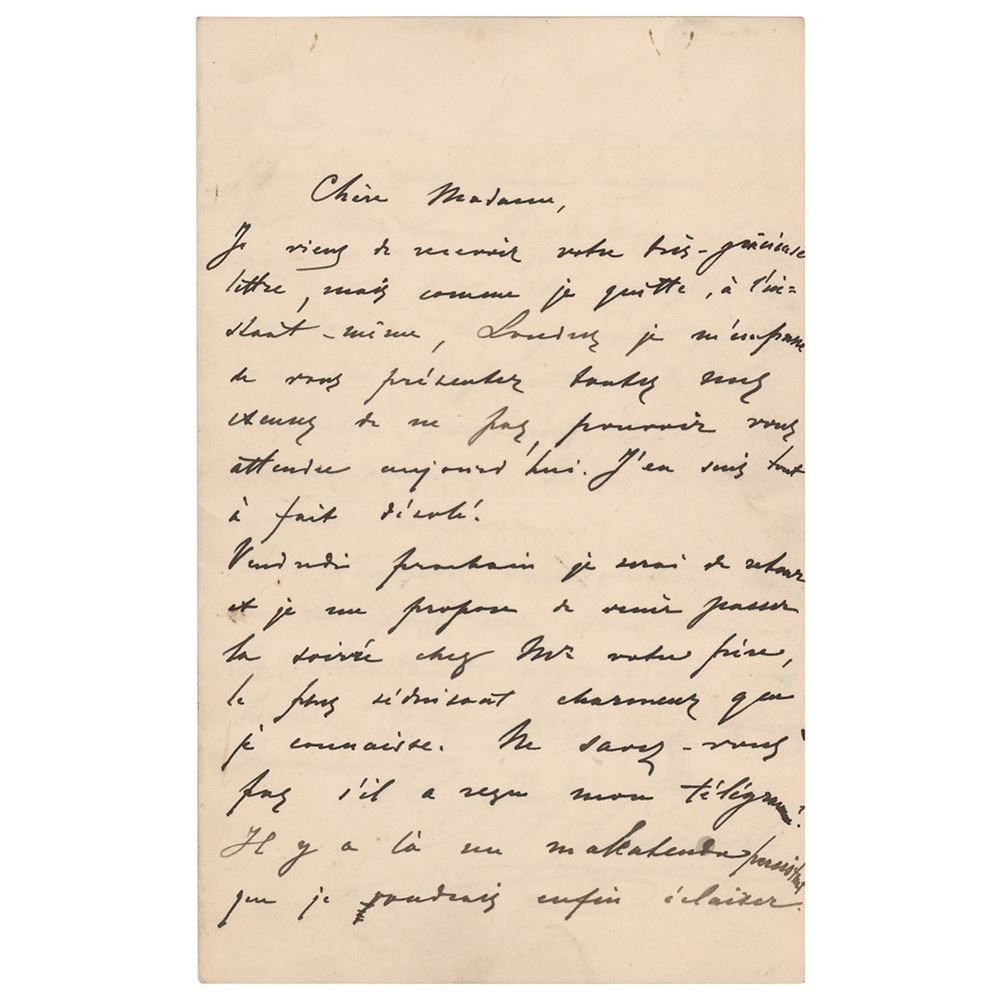 Chère Madame,
Je viens de recevoir votre très-gracieuse
lettre, mais comme je quitte, à l'in=
stant-même, Londres je m'empresse
de vous présenter toutes mes
excuses de ne pas pouvoir vous
attendre aujourd'hui. J'en suis tout
à fait désolé.
Vendredi prochain je serai de retour
et je me propose de venir passer
la soirée chez Mr votre frère,
le plus séduisant charmeur que
je connaisse. Ne savez-vous
pas s'il a reçu mon télégramme?
Il y a là un
que je voudrais enfin éclairer.